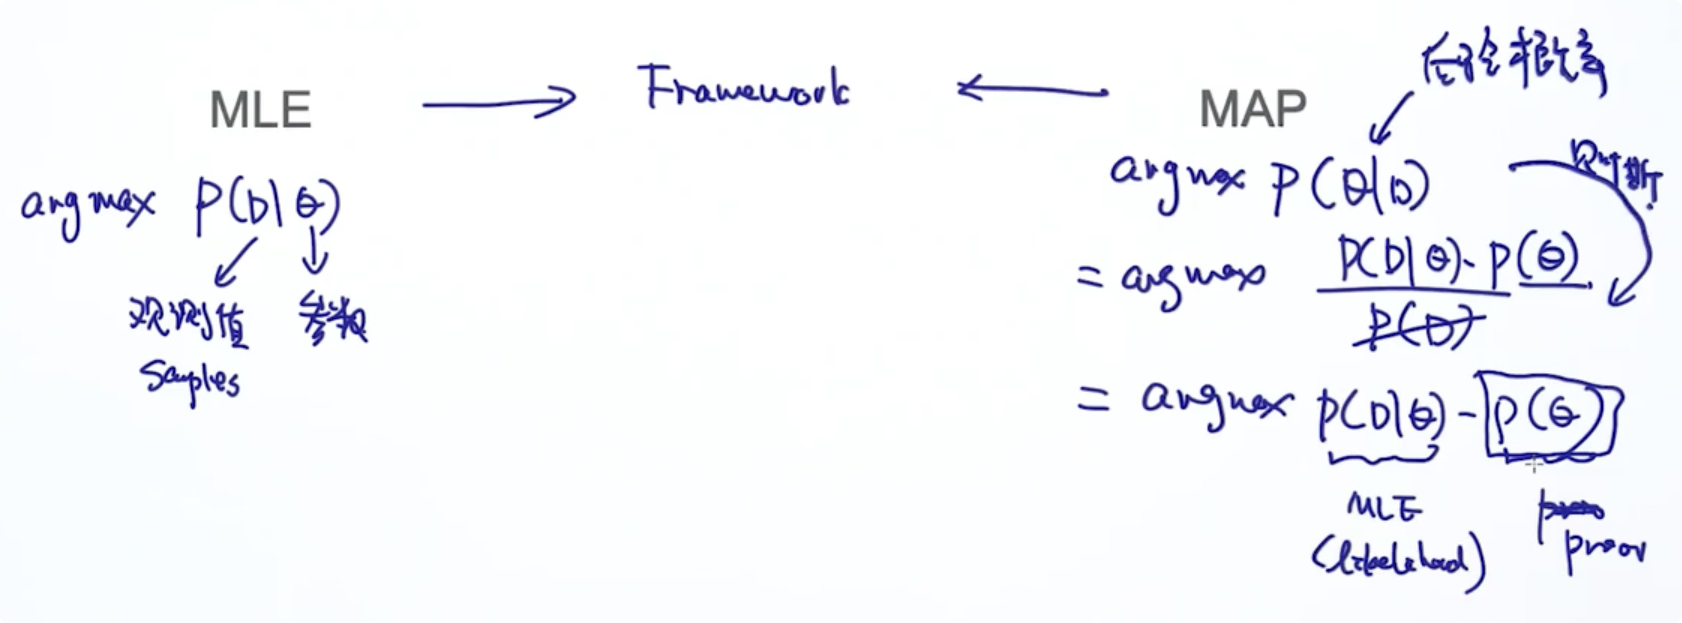 MLE → Framework ← MAP
后验概率
argmax P(D|θ)
观测值 参数
Samples
argmax P(θ|D)
= argmax P(D|θ)·P(θ) / P(D)
= argmax P(D|θ)·P(θ)
MLE
(likelihood)
prior